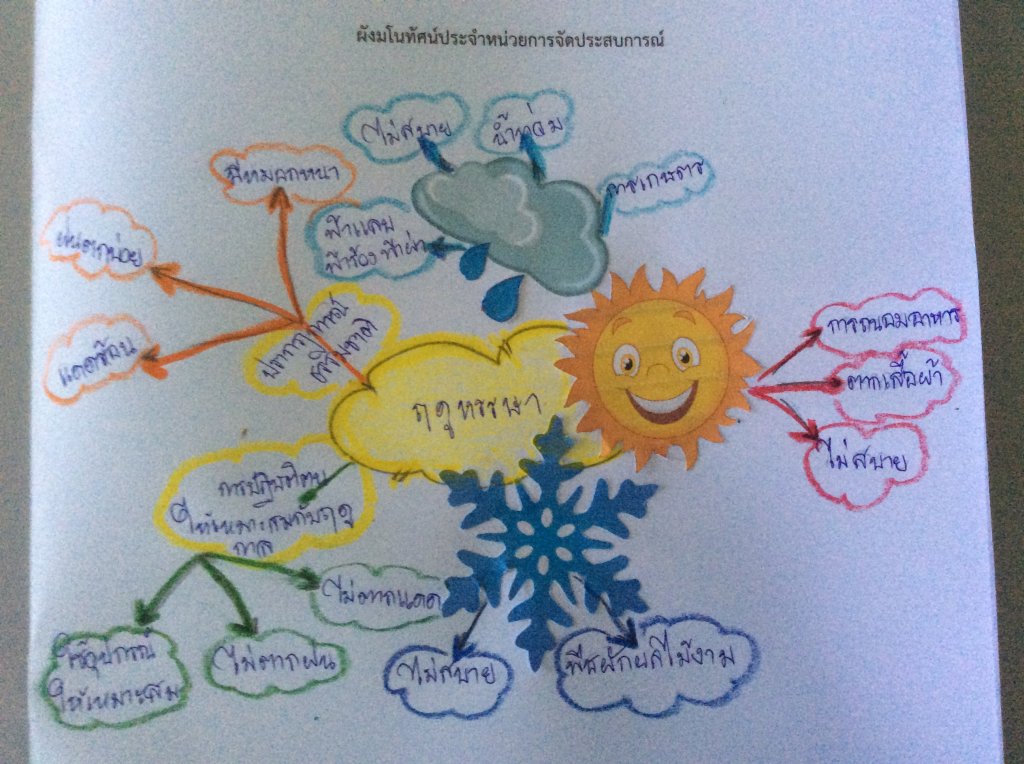 ผังมโนทัศน์ประจำหน่วยการจัดประสบการณ์
ไม่สบาย
น้ำท่วม
การเกษตร
ฟ้าแลบ
ฟ้าร้อง ฟ้าผ่า
มีหมอกหนา
ฝนตกบ่อย
แดดร้อน
ปรากฏการณ์
ธรรมชาติ
ฤดูหรรษา
การถนอมอาหาร
ตากเสื้อผ้า
ไม่สบาย
การปฏิบัติตน
ให้เหมาะสมกับฤดู
กาล
ไม่ตากแดด
ไม่ตากฝน
ใช้อุปกรณ์
ให้เหมาะสม
ไม่สบาย
พืชผักผลไม้งาม